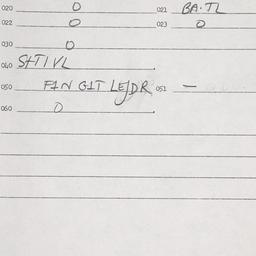 020 0 021 BA.TL
022 0 023 0
030 0
040 SHTIVL
050 FIN GIT LEJDR 051 —
060 0